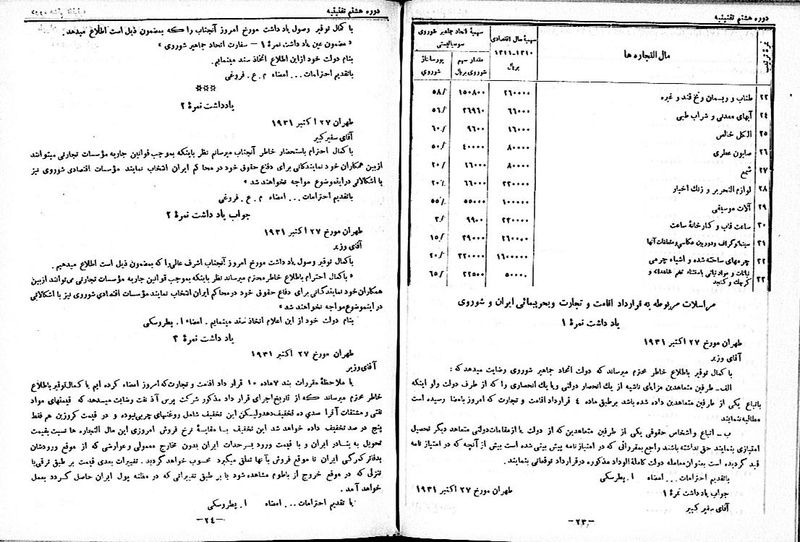 دوره هشتم تقنینیه
نمرهٔ ترتیب
مال التجاره ها
سهمیهٔ سال اقتصادی
۱۳۱۰-۱۳۱۱
بریال
سهمیهٔ اتحاد جماهیر شوروی
سوسیالیستی
مقدار سهم
شوروی بریال
پورسانتاژ
شوروی
۲۳ طناب و ریسمان و نخ قند و غیره ۲۶۰۰۰۰ ۱۵۰۸۰۰ ۵۸٪
۲۴ آبهای معدنی و شراب طبی ۶۶۰۰۰ ۳۶۹۶۰ ۵۶٪
۲۵ الکل خالص ۱۶۰۰۰ ۹۶۰۰ ۶۰٪
۲۶ صابون عطری ۸۰۰۰۰ ۴۰۰۰۰ ۵۰٪
۲۷ شمع ۸۰۰۰۰ ۱۶۰۰۰ ۲۰٪
۲۸ لوازم التحریر و زنك اخبار ۲۲۰۰۰۰ ۶۶۰۰۰ ۲۰٪
۲۹ آلات موسیقی ۱۰۰۰۰۰ ۵۵۰۰۰ ۵۵٪
۳۰ ساعت قاب و کارخانهٔ ساعت ۲۲۰۰۰۰ ۹۹۰۰ ۳٪
۳۱ سینماتوگراف ودوربین عکاسی و متعلقات آنها ۲۶۰۰۰۰ ۳۹۰۰۰ ۱۵٪
۳۲ چرمهای ساخته شده و اشیاء چرمی ۱۶۰۰۰۰۰ ۳۲۰۰۰۰ ۲۰٪
۳۳ نباتات و مواد نباتی باستثناء تخم ۵۰۰۰۰ ۳۲۵۰۰ ۶۵٪
مراسلات مربوطه به قرارداد اقامت و تجارت وبحرپیمائی ایران و شوروی
یاد داشت نمرهٔ ۱
طهران مورخ ۲۷ اکتبر ۱۹۳۱
آقای وزیر
با کمال توقیر باطلاع خاطر محترم میرساند که دولت اتحاد جماهیر شوروی رضایت میدهد که :
الف- طرفین متعاهدین مزایای ناشیه از یك انحصار دولتی ویا یك انحصاری را که از طرف دولت واو اینکه
باتباع یکی از طرفین متعاهدین داده شده باشد برطبق ماده ۴ قرارداد اقامت و تجارت که امروز بامضا رسیده است
مطالبه ننمایند
ب - اتباع واشخاص حقوقی یکی از طرفین متعاهدین که از دولت یا ازمقامات دولتی متعاهد دیگر تحصیل
امتیازی بنمایند حق نداشته باشند راجع بمقرراتی که در امتیاز نامه پیش بینی شده است بیش از آنچه که در امتیاز نامه
قید کردیده است بعنوان معامله دولت کاملة الوداد مذکوره درقرارداد توقعاتی بنمایند.
بتقدیم احترامات... امضاء ا. پطرسکی
جواب یاد داشت نمرهٔ ۱
طهران مورخ ۲۷ اکتبر ۱۹۳۱
آقای سفیر کبیر
-۲۳-
دوره هشتم تقنینیه
با کمال توقیر وصول یاد داشت مورخ امروز آنجناب را که بمضمون ذیل است اطلاع میدهد.
« مضمون عین یاد داشت نمرهٔ ۱ - سفارت اتحاد جماهیر شوروی »
بنام دولت خود ازاین اطلاع اتخاذ سند مینمایم.
بتقدیم احترامات... امضاء م . ع . فروغی
***
یادداشت نمرهٔ ۲
طهران ۲۷ اکتبر ۱۹۳۱
آقای سفیر کبیر
با کمال احترام باستحضار خاطر آنجناب میرسانم نظر باینکه بموجب قوانین جاریه مؤسسات تجارتی میتوانند
از بین همکاران خود نمایندگانی برای دفاع حقوق خود در محاکم ایران انتخاب نمایند مؤسسات اقتصادی شوروی نیز
با اشکالاتی دراینموضوع مواجه نخواهند شد »
بتقدیم احترامات... امضاء م . ع . فروغی
جواب یاد داشت نمرهٔ ۲
طهران مورخ ۲۷ اکتبر ۱۹۳۱
آقای وزیر
با کمال توقیر وصول یاد داشت مورخ امروز آنجناب اشرف عالی را که بمضمون ذیل است اطلاع میدهیم.
« باکمال احترام باطلاع خاطر محترم میرساند نظر باینکه بموجب قوانین جاریه مؤسسات تجارتی میتوانند ازبین
همکاران خود نمایندگانی برای دفاع حقوق خود در محاکم ایران انتخاب نمایند مؤسسات اقتصادی شوروی نیز با اشکالاتی
در اینموضوع مواجه نخواهند شد »
بنام دولت خود از این اعلام اتخاذ سند مینمایم . امضاء ا . پطرسکی
یاد داشت نمرهٔ ۳
طهران مورخ ۲۷ اکتبر ۱۹۳۱
آقای وزیر
با ملاحظهٔ مقررات بند ۷ ماده ۱۰ قرار داد اقامت و تجارت که امروز امضاء کرده ایم با کمال توقیر باطلاع
خاطر محترم میرساند که از تاریخ اجرای قرار داد مذکور شرکت پرس آذ نفت رضایت میدهد که قیمتهای مواد
نفتی و مشتقات آنرا صدی ده تخفیف دهد ولیکن این تخفیف شامل روغنهای چرب نبوده و در قیمت کروزین هم فقط
پنج در صد تخفیف داده خواهد شد این تخفیف بمقایسهٔ نرخ فروش امروزی این مال التجاره ها نسبت بقیمت
تحویل به بنادر ایران و یا قیمت ورود بسرحدات ایران بدون مخارج معمولی وعوارضی که از موقع ورودشان
بدفاتر گمرکی ایران تا موقع فروش بآنها تعلق میگیرد محسوب خواهد گردید . تغییرات بعدی قیمت بر طبق ترقی یا
تنزلی که در موقع خروج از باطوم مشاهده شود یا بر طبق تغییراتی که در مظنه پول ایران حاصل گردد بعمل
خواهد آمد .
با تقدیم احترامات... امضاء ا. پطرسکی
-۲۴-